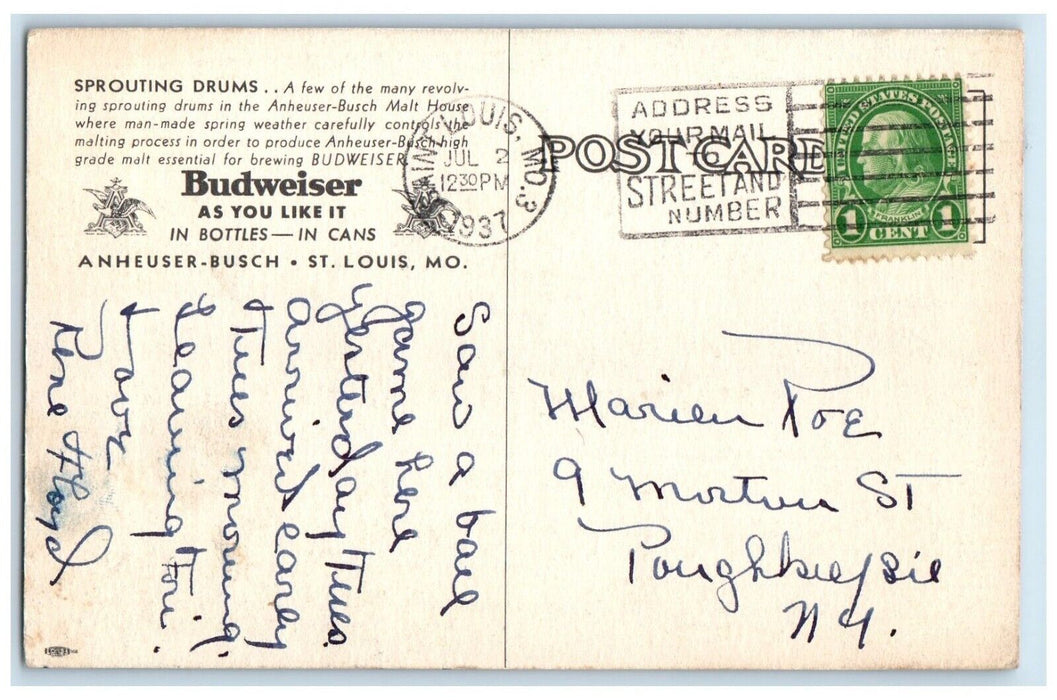 SPROUTING DRUMS . . A few of the many revolv-
ing sprouting drums in the Anheuser-Busch Malt House
where man-made spring weather carefully controls the
malting process in order to produce Anheuser-Busch high
grade malt essential for brewing BUDWEISER
Budweiser
AS YOU LIKE IT
IN BOTTLES — IN CANS
ANHEUSER-BUSCH • ST. LOUIS, MO.
Saw a ball
game here
yesterday Tues.
arrived early
Tues morning,
leaving Fri.
Love
Rene & Floyd
SAINT LOUIS, MO. 3
JUL 2
12 30 PM
1937
POST CARD
ADDRESS
YOUR MAIL
TO
STREET AND
NUMBER
UNITED STATES POSTAGE
FRANKLIN
1 CENT 1
Marien Roe
9 Morton ST
Poughkeepsie
N.Y.